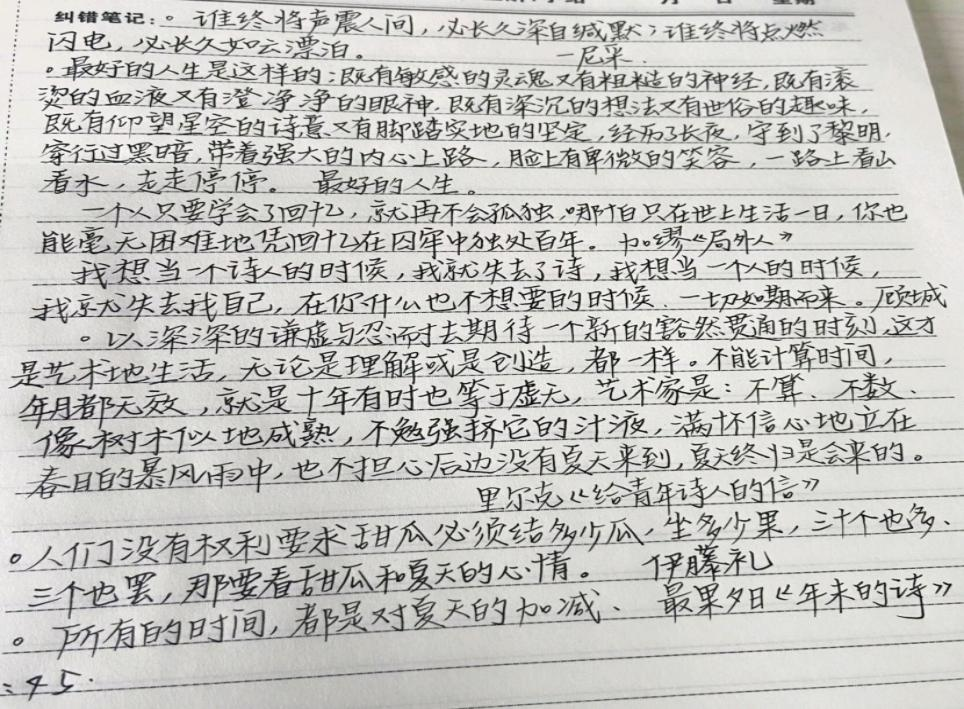 纠错笔记:。谁终将声震人间,必长久深自缄默;谁终将点燃
闪电,必长久如云漂泊。 —尼采.
。最好的人生是这样的:既有敏感的灵魂又有粗糙的神经,既有滚
烫的血液又有澄净净的眼神,既有深沉的想法又有世俗的趣味,
既有仰望星空的诗意又有脚踏实地的坚定,经历了长夜,守到了黎明,
穿行过黑暗,带着强大的内心上路,脸上有卑微的笑容,一路上看山
看水,走走停停。 最好的人生。
一个人只要学会了回忆,就再不会孤独,哪怕只在世上生活一日,你也
能毫无困难地凭回忆在囚牢中独处百年。加缪《局外人》
我想当一个诗人的时候,我就失去了诗,我想当一个人的时候,
我就失去我自己,在你什么也不想要的时候.一切如期而来。顾城
。以深深的谦虚与忍耐去期待一个新的豁然贯通的时刻,这才
是艺术地生活,无论是理解或是创造,都一样。不能计算时间,
年月都无效,就是十年有时也等于虚无,艺术家是:不算、不数、
像树木似地成熟,不勉强挤它的汁液,满怀信心地立在
春日的暴风雨中,也不担心后边没有夏天来到,夏天终归是会来的。
里尔克《给青年诗人的信》
。人们没有权利要求甜瓜必须结多少瓜,坐多少果,三十个也多、
三个也罢,那要看甜瓜和夏天的心情。 伊藤礼
。所有的时间,都是对夏天的加减、 最果夕日《年末的诗》
:45.